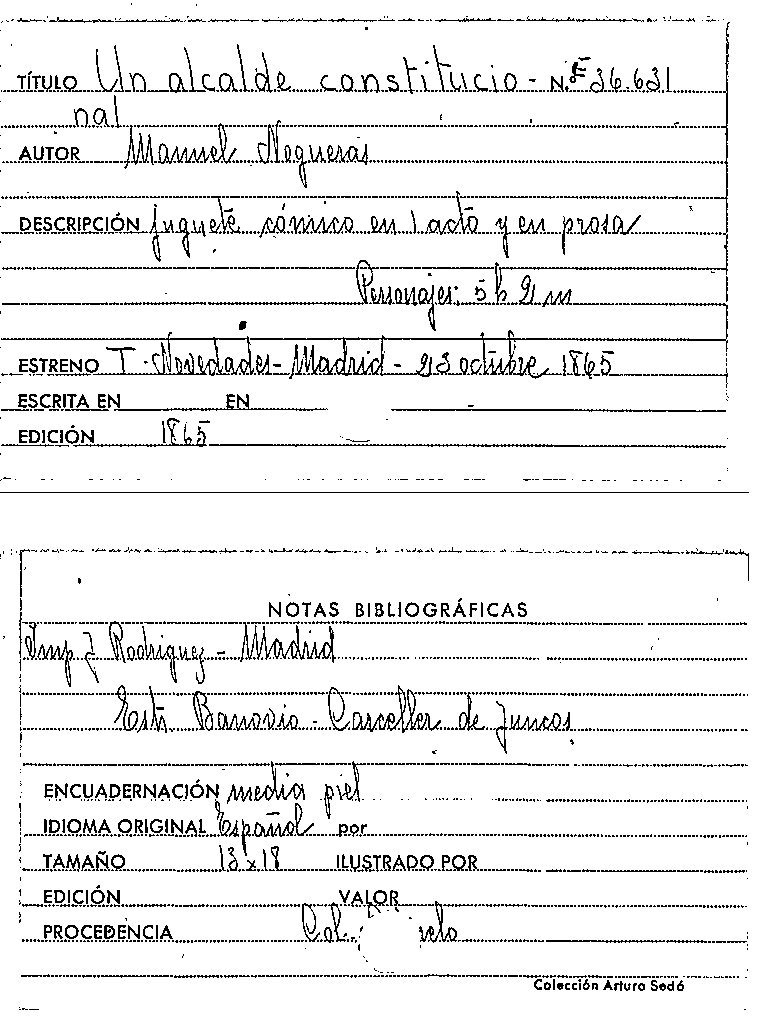 TÍTULO Un alcalde constitucio- N.º 36.631
nal
AUTOR Manuel Nogueras
DESCRIPCIÓN juguete cómico en 1 acto y en prosa
Personajes: 5 h 2 m
ESTRENO T. Novedades - Madrid - 23 octubre 1865
ESCRITA EN EN
EDICIÓN 1865
NOTAS BIBLIOGRÁFICAS
Imp J Rodriguez - Madrid
Estr. de Juncos
ENCUADERNACIÓN media piel
IDIOMA ORIGINAL Español por
TAMAÑO 13x18 ILUSTRADO POR
EDICIÓN VALOR
PROCEDENCIA Col.
Colección Arturo Sedó